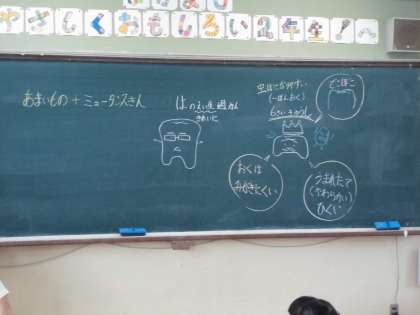 さしくおもしろい2年生!
あまいもの+ミュータンスきん
はのえい生週かん
きれいに
虫ばになりやすい
(一ばんおく)
6さいきゅうし
でこぼこ
おくは
みがきにくい
うまれたて
(やわらかい)
ひくい